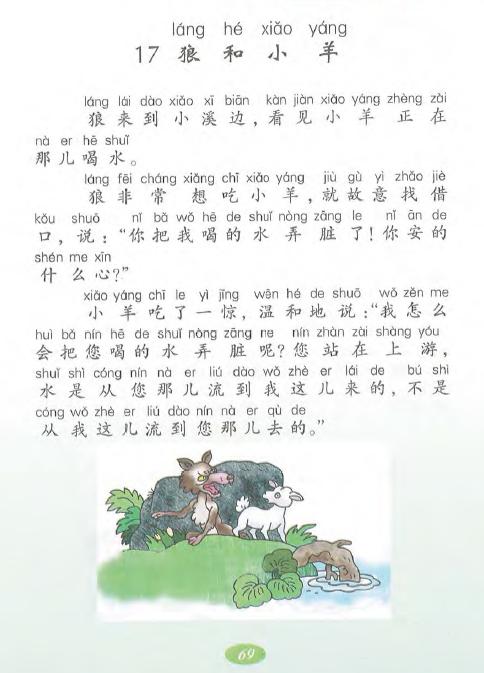 láng hé xiǎo yáng
17 狼 和 小 羊
láng lái dào xiǎo xī biān kàn jiàn xiǎo yáng zhèng zài
狼 来 到 小 溪 边，看 见 小 羊 正 在
nà er hē shuǐ
那 儿 喝 水。
láng fēi cháng xiǎng chī xiǎo yáng jiù gù yì zhǎo jiè
狼 非 常 想 吃 小 羊，就 故 意 找 借
kǒu shuō nǐ bǎ wǒ hē de shuǐ nòng zāng le nǐ ān de
口，说：“你 把 我 喝 的 水 弄 脏 了！你 安 的
shén me xīn
什 么 心？”
xiǎo yáng chī le yì jīng wēn hé de shuō wǒ zěn me
小 羊 吃 了 一 惊，温 和 地 说：“我 怎 么
huì bǎ nín hē de shuǐ nòng zāng ne nín zhàn zài shàng yóu
会 把 您 喝 的 水 弄 脏 呢？您 站 在 上 游，
shuǐ shì cóng nín nà er liú dào wǒ zhè er lái de bú shì
水 是 从 您 那 儿 流 到 我 这 儿 来 的，不 是
cóng wǒ zhè er liú dào nín nà er qù de
从 我 这 儿 流 到 您 那 儿 去 的。”
69